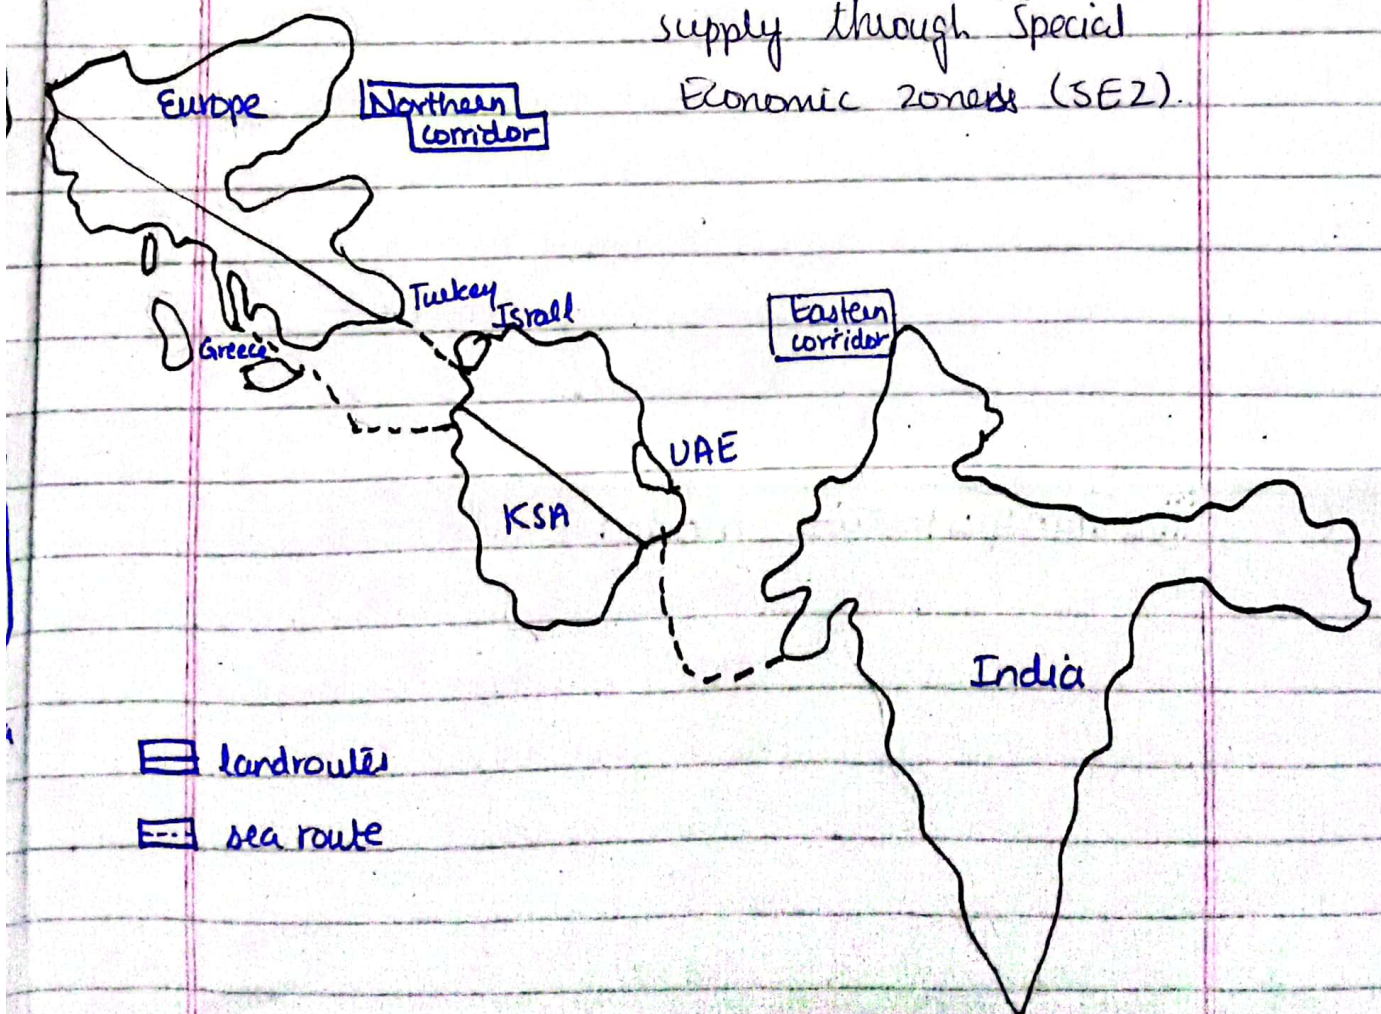 supply through Special
Economic zones (SEZ).
Europe
Northern
corridor
Turkey
Israel
Greece
Eastern
corridor
UAE
KSA
India
landroutes
sea route